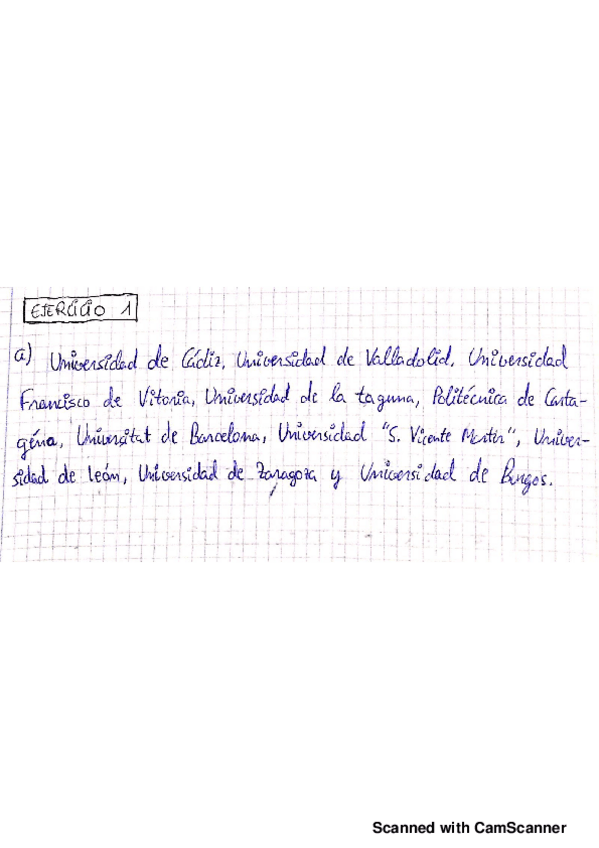 EJERCICIO 1
a) Universidad de Cádiz, Universidad de Valladolid, Universidad
Francisco de Vitoria, Universidad de la Laguna, Politécnica de Carta-
géna, Universitat de Barcelona, Universidad "S. Vicente Mártir", Univer-
sidad de león, Universidad de Zaragoza y Universidad de Burgos.
Scanned with CamScanner